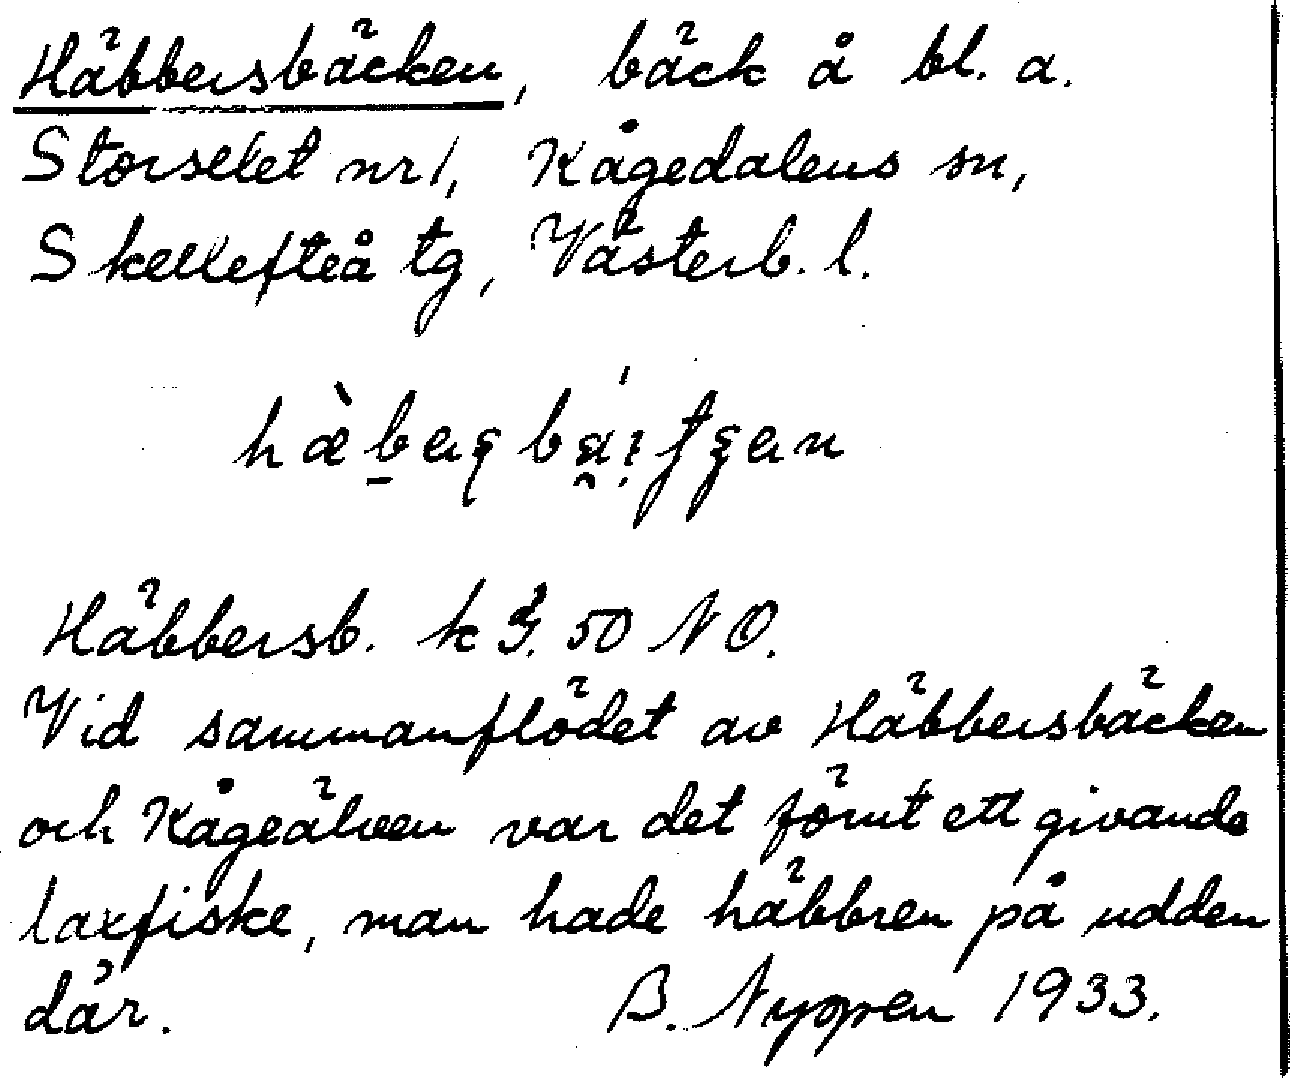 Häbbersbäcken, bäck å bl. a.
Storselet nr 1, Kågedalens sn,
Skellefteå tg, Västerb. l.
Häbbersb. k 50 NO.
Vid sammanflödet av Häbbersbäcken
och Kågeälven var det förut ett givande
laxfiske, man hade häbbren på udden
där. B. Nyrpen 1933.